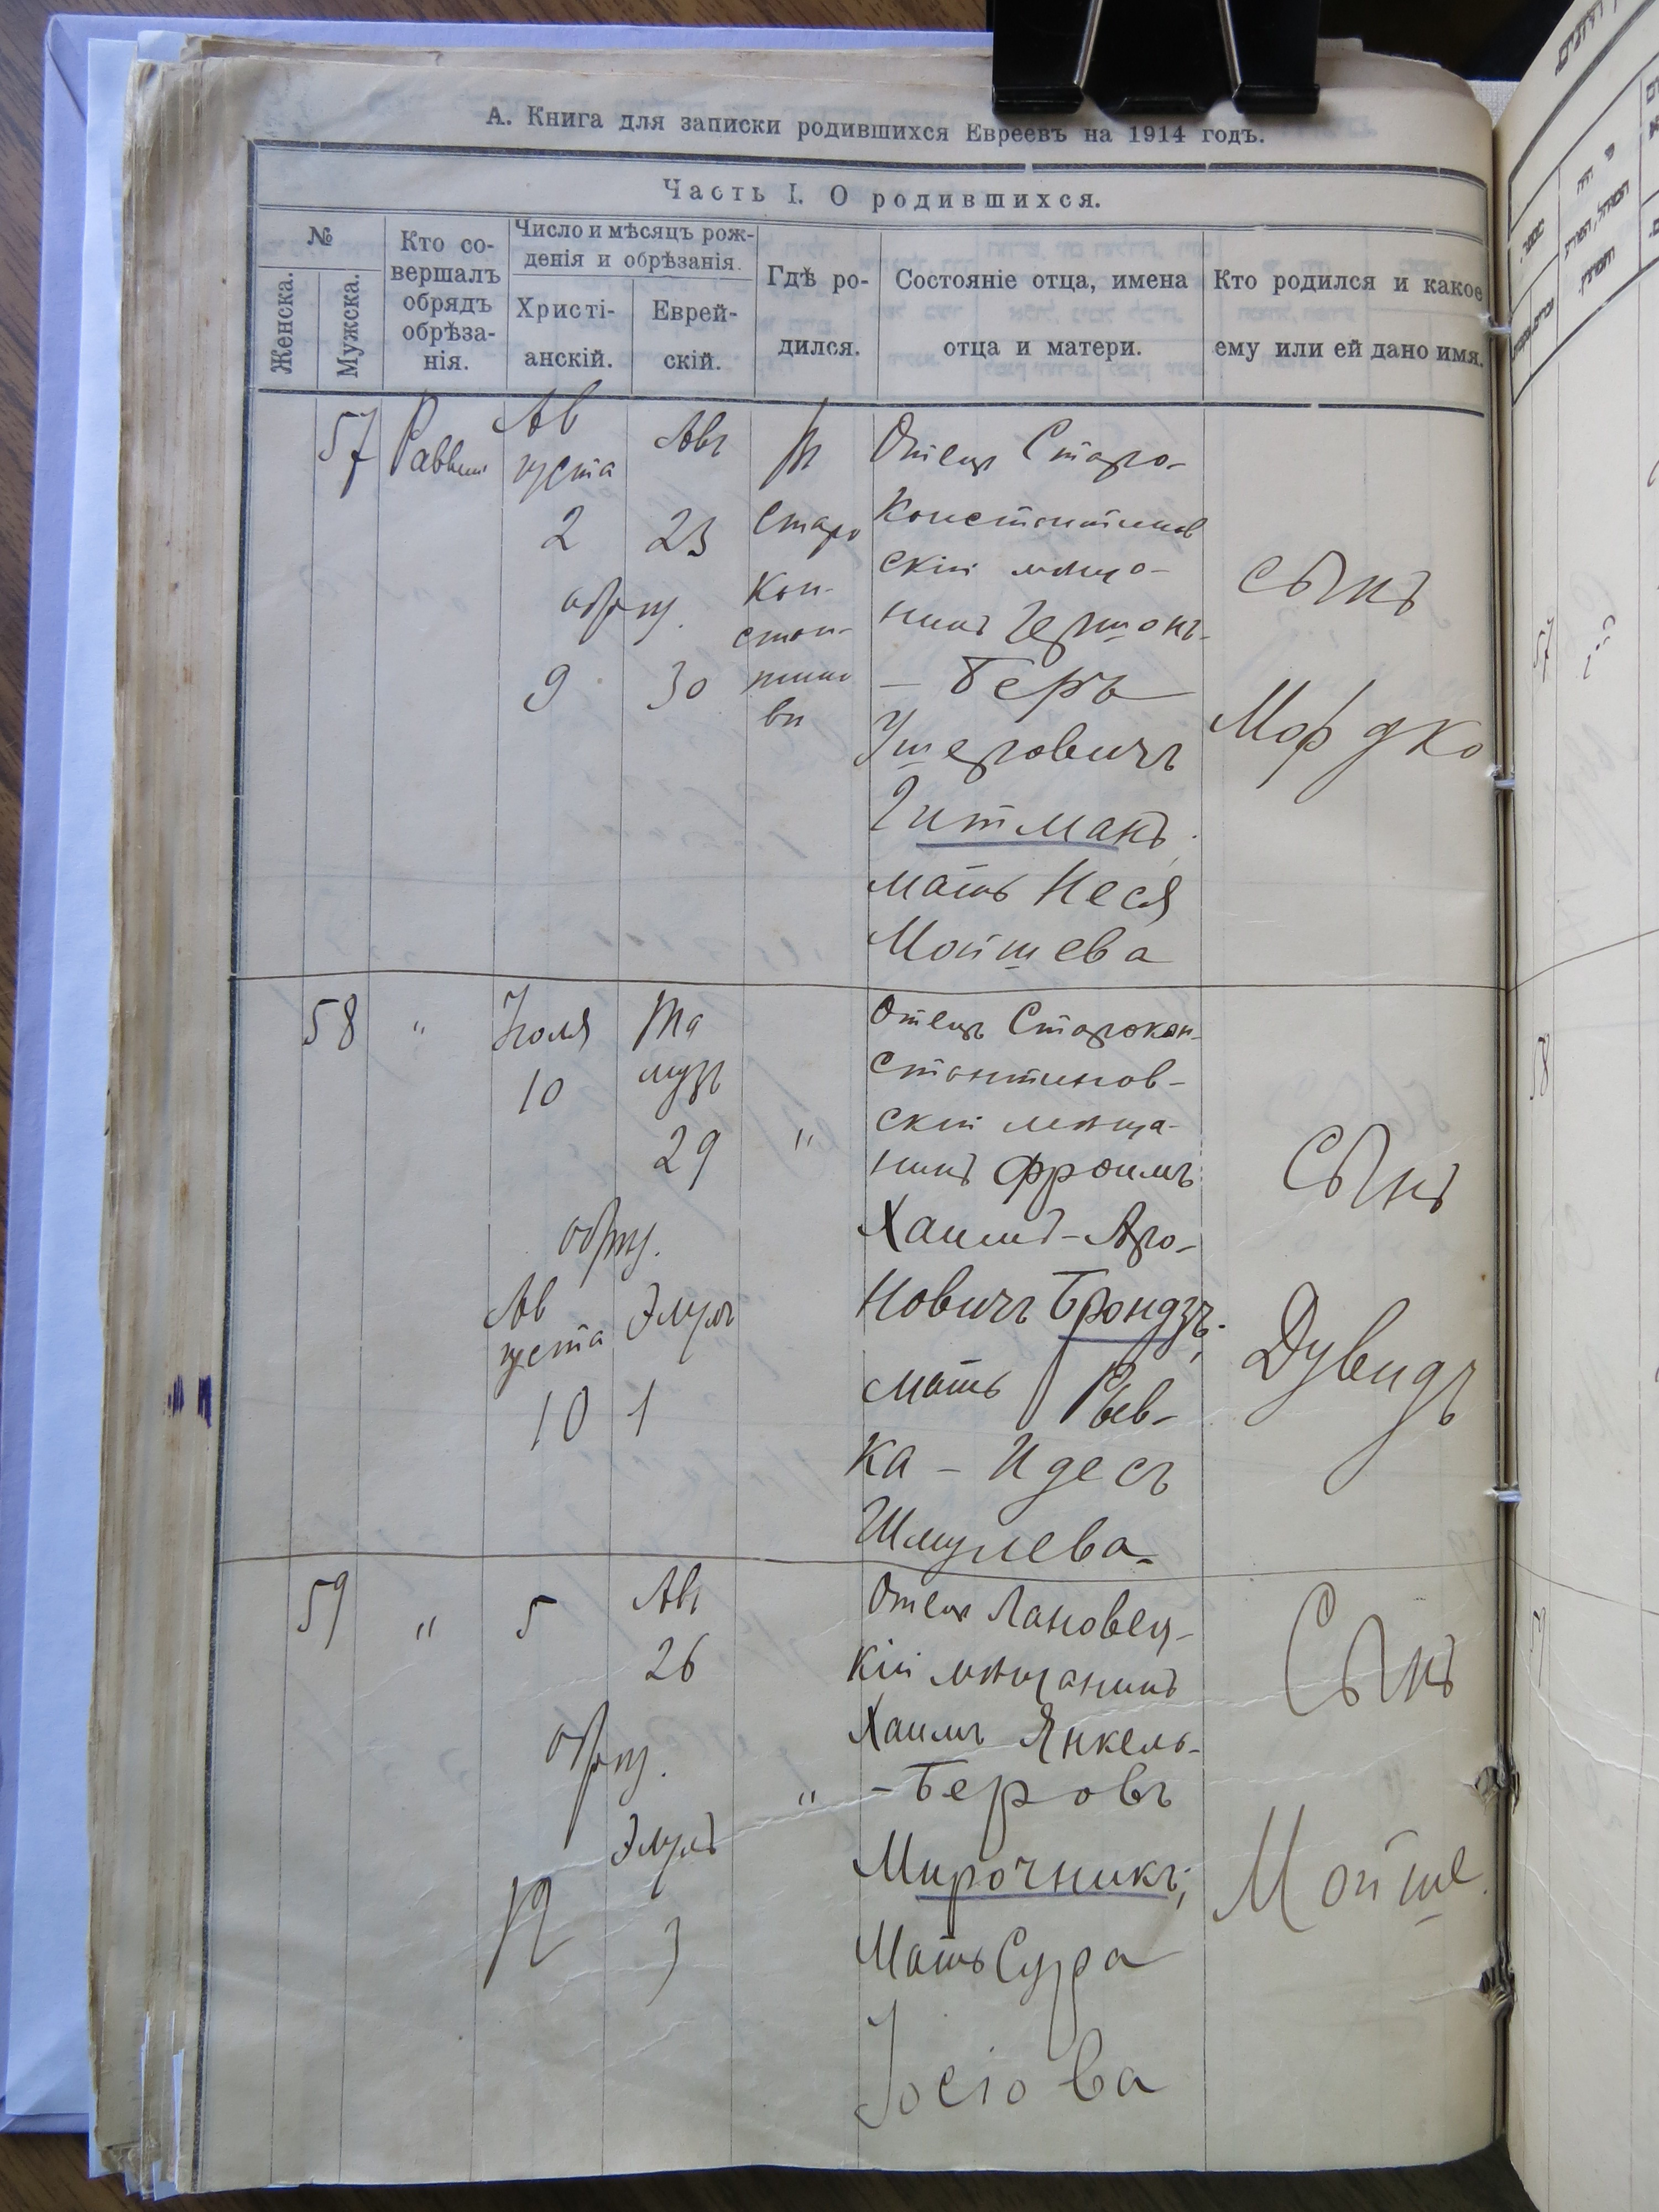 А. Книга для записки родившихся Евреевъ на 1914 годъ.
Часть I. О родившихся.
№
Женска.
Мужска.
Кто со-
вершалъ
обрядъ
обрѣза-
нія.
Число и мѣсяцъ рож-
денія и обрѣзанія.
Христі-
анскій.
Еврей-
скій.
Гдѣ ро-
дился.
Состояніе отца, имена
отца и матери.
Кто родился и какое
ему или ей дано имя.
57
Раввин
Ав
густа
2
обрѣз.
9
Авъ
23
30
Старо
Кон-
стан-
тино
вѣ
Отецъ Старо-
Константинов
скій мѣща-
нинъ Гершонъ-
- Беръ
Ушеровичъ
Гитманъ
мать Неся
Мойшева
сынъ
Мордко
58
"
Іюля
10
обрѣз.
Ав
густа
10
Та
музъ
29
Элулъ
1
"
Отецъ Старокон-
стантинов-
скій мѣща-
нинъ Фроимъ
Хаимъ-Аро-
новичъ Брондзъ;
мать Рыв-
ка - Идесъ
Шмулева.
Сынъ
Дувидъ
59
"
5
обрѣз.
12
Авъ
26
Элулъ
3
"
Отецъ Лановец-
кій мѣщанинъ
Хаимъ Янкель-
- Беровъ
Мирочникъ;
Мать Сура
Іосіова
Сынъ
Мойше.
57
58